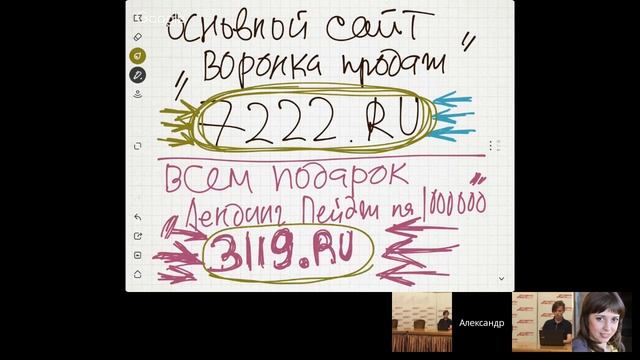 основной сайт
"Воронка продаж"
7222.RU
Всем подарок
"Лендинг Пейдж на 1000000"
3119.RU
Александр